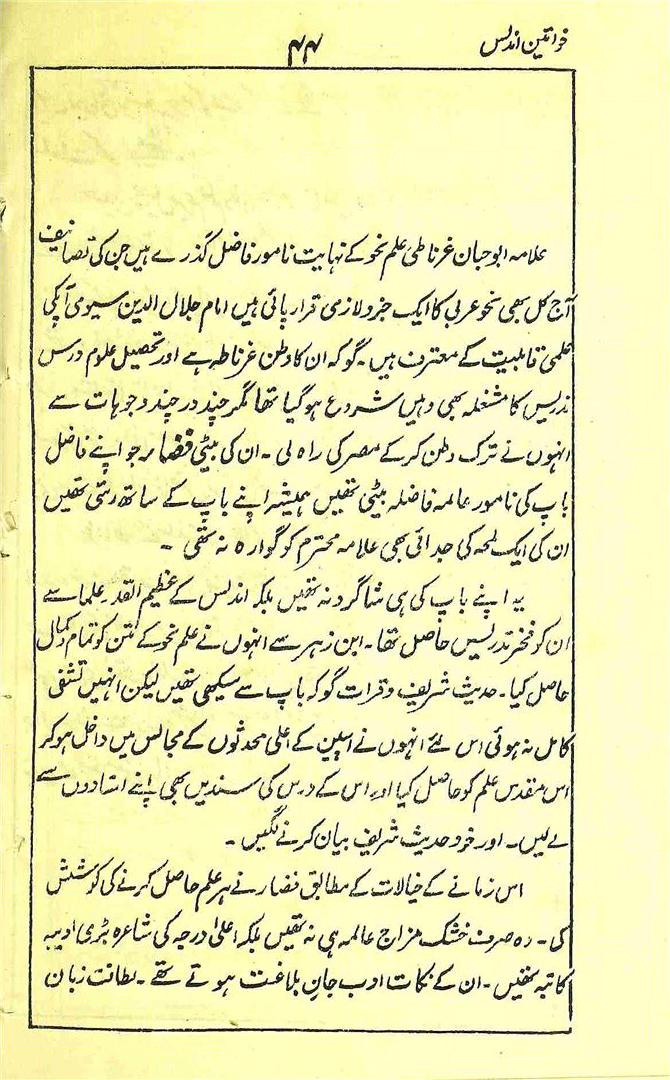 خواتین اندلس
۴۴
علامہ ابوحبان غرناطی علم نحو کے نہایت نامور فاضل گذرے ہیں جن کی تصانیف
آج کل بھی نحو عربی کا ایک جزو لازمی قرار پائی ہیں امام جلال الدین سیوی آپکی
علمی قابلیت کے معترف ہیں۔ گو کہ ان کا وطن غرناطہ ہے اور تحصیل علوم درس
تدریس کا مشغلہ بھی وہیں شروع ہو گیا تھا مگر چند در چند وجوہات سے
انہوں نے ترک وطن کر کے مصر کی راہ لی۔ ان کی بیٹی فضار جو اپنے فاضل
باپ کی نامور عالمہ فاضلہ بیٹی تھیں ہمیشہ اپنے باپ کے ساتھ رہتی تھیں
ان کی ایک لمحہ کی جدائی بھی علامہ محترم کو گوارہ نہ تھی ۔
یہ اپنے باپ کی ہی شاگرد نہ تھیں بلکہ اندلس کے عظیم القدر علما سے
ان کو فخر تدریس حاصل تھا۔ ابن زہر سے انہوں نے علم نحو کے متن کو تمام و کمال
حاصل کیا۔ حدیث شریف و قرات گو کہ باپ سے سیکھی تھیں لیکن انہیں تشفی
کامل نہ ہوئی اس لئے انہوں نے اسپین کے اعلی محدثوں کے مجالس میں داخل ہو کر
اس مقدس علم کو حاصل کیا اور اس کے درس کی سندیں بھی اپنے استادوں سے
لے لیں۔ اور خود حدیث شریف بیان کرنے لگیں ۔
اس زمانے کے خیالات کے مطابق نضار نے ہر علم حاصل کرنے کی کوشش
کی۔ وہ صرف خشک مزاج عالمہ ہی نہ تھیں بلکہ اعلیٰ درجہ کی شاعرہ بڑی ادیبہ
کاتبہ تھیں۔ ان کے نکات ادب جان بلاغت ہوتے تھے۔ لطافت زبان